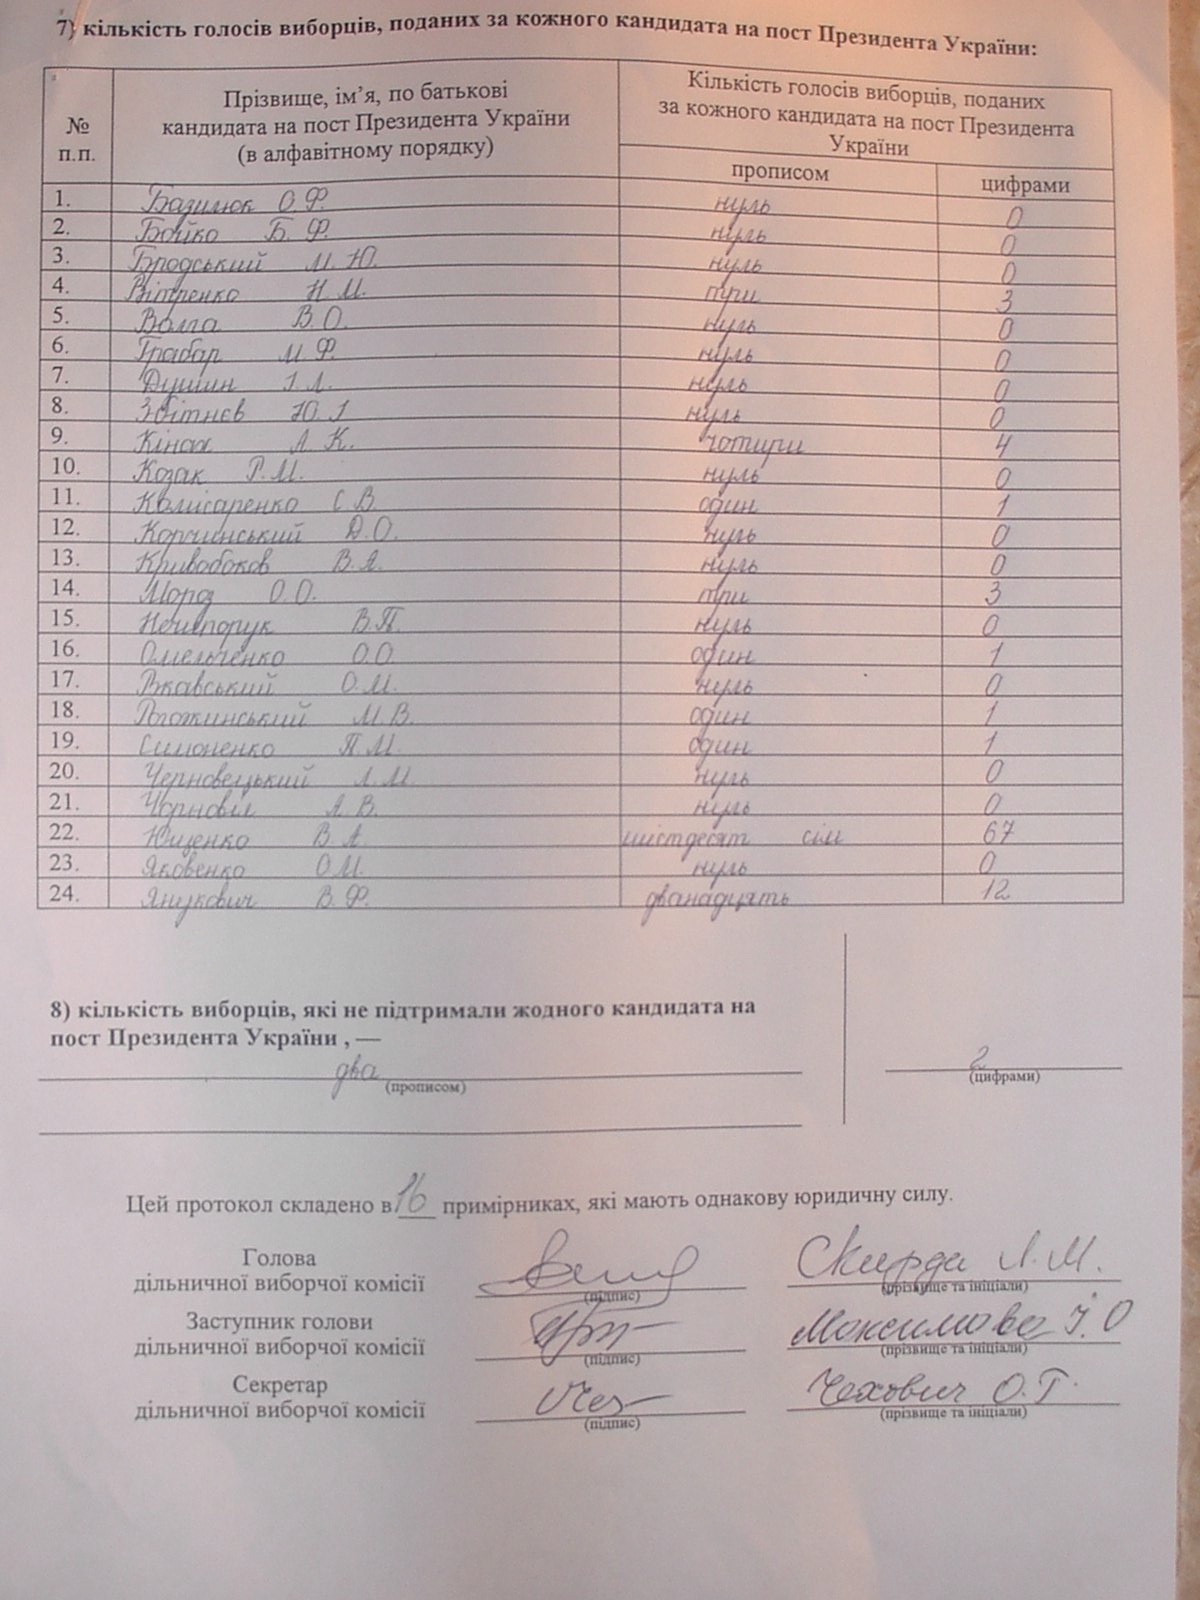 7) кількість голосів виборців, поданих за кожного кандидата на пост Президента України:
№ п.п.
Прізвище, ім’я, по батькові
кандидата на пост Президента України
(в алфавітному порядку)
Кількість голосів виборців, поданих
за кожного кандидата на пост Президента
України
прописом цифрами
1. Базилюк О.Ф. нуль 0
2. Бойко Б.Ф. нуль 0
3. Бродський М.Ю. нуль 0
4. Вітренко Н.М. три 3
5. Волга В.О. нуль 0
6. Грабар М.Ф. нуль 0
7. Душин І.Л. нуль 0
8. Збітнєв Ю.І нуль 0
9. Кінах А.К. чотири 4
10. Козак Р.М. нуль 0
11. Комісаренко С.В. один 1
12. Корчинський Д.О. нуль 0
13. Кривобоков В.А. нуль 0
14. Мороз О.О. три 3
15. Нечипорук В.П. нуль 0
16. Омельченко О.О. один 1
17. Ржавський О.М. нуль 0
18. Рогожинський М.В. один 1
19. Симоненко П.М. один 1
20. Черновецький Л.М. нуль 0
21. Чорновіл А.В. нуль 0
22. Ющенко В.А. шістдесят сім 67
23. Яковенко О.М. нуль 0
24. Янукович В.Ф. дванадцять 12
8) кількість виборців, які не підтримали жодного кандидата на
пост Президента України , —
два 2
(прописом) (цифрами)
Цей протокол складено в 16 примірниках, які мають однакову юридичну силу.
Голова
дільничної виборчої комісії Скирда Л.М.
(підпис) (прізвище та ініціали)
Заступник голови
дільничної виборчої комісії Максимова І.О
(підпис) (прізвище та ініціали)
Секретар
дільничної виборчої комісії Чехович О.Г.
(підпис) (прізвище та ініціали)